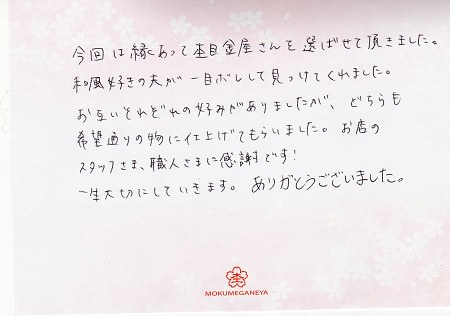 今回は縁あって杢目金屋さんを選ばせて頂きました。
和風好きの夫が一目ボレして見つけてくれました。
お互いそれぞれの好みがありましたが、どちらも
希望通りの物に仕上げてもらいました。お店の
スタッフさま、職人さまに感謝です!
一生大切にしていきます。ありがとうございました。
杢
MOKUMEGANEYA